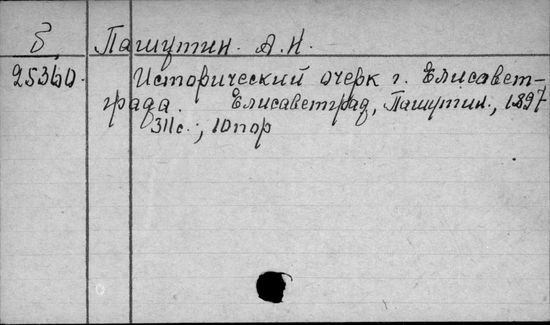 Б Пашутин. А.Н.
25360. Исторический очерк г. Елисавет-
града. Елисаветград, Пашутин., 1897
311с.; 10пор